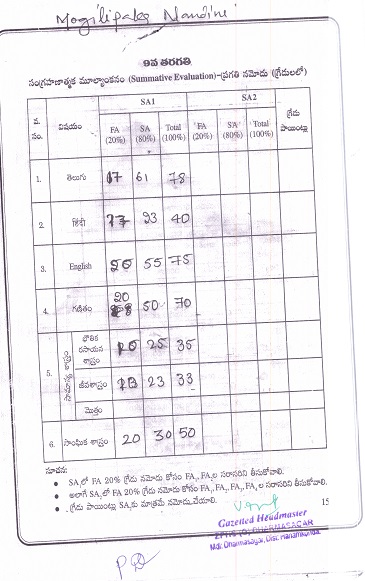 Mogilipaka Nandini
9వ తరగతి
సంగ్రహణాత్మక మూల్యాంకనం (Summative Evaluation)-ప్రగతి నమోదు (గ్రేడులలో)
వ. సం. విషయం SA1 SA2 గ్రేడు పాయింట్లు
FA (20%) SA (80%) Total (100%) FA (20%) SA (80%) Total (100%)
1. తెలుగు 17 61 78
2. हिंदी 17 23 40
3. English 20 55 75
4. గణితం 20 50 70
5. భౌతిక రసాయన శాస్త్రం 10 25 35
జీవశాస్త్రం 23 33
మొత్తం
6. సాంఘిక శాస్త్రం 20 30 50
సూచన:
• SA1లో FA 20% గ్రేడు నమోదు కోసం FA1, FA2ల సరాసరిని తీసుకోవాలి.
• అలాగే SA2లో FA 20% గ్రేడు నమోదు కోసం FA1, FA2, FA3, FA4 ల సరాసరిని తీసుకోవాలి.
• గ్రేడు పాయింట్లు SA2కు మాత్రమే నమోదు చేయాలి.
15
Gazetted Headmaster
DHARMASAGAR
Mdl: Dharmasagar, Dist: Hanamkonda